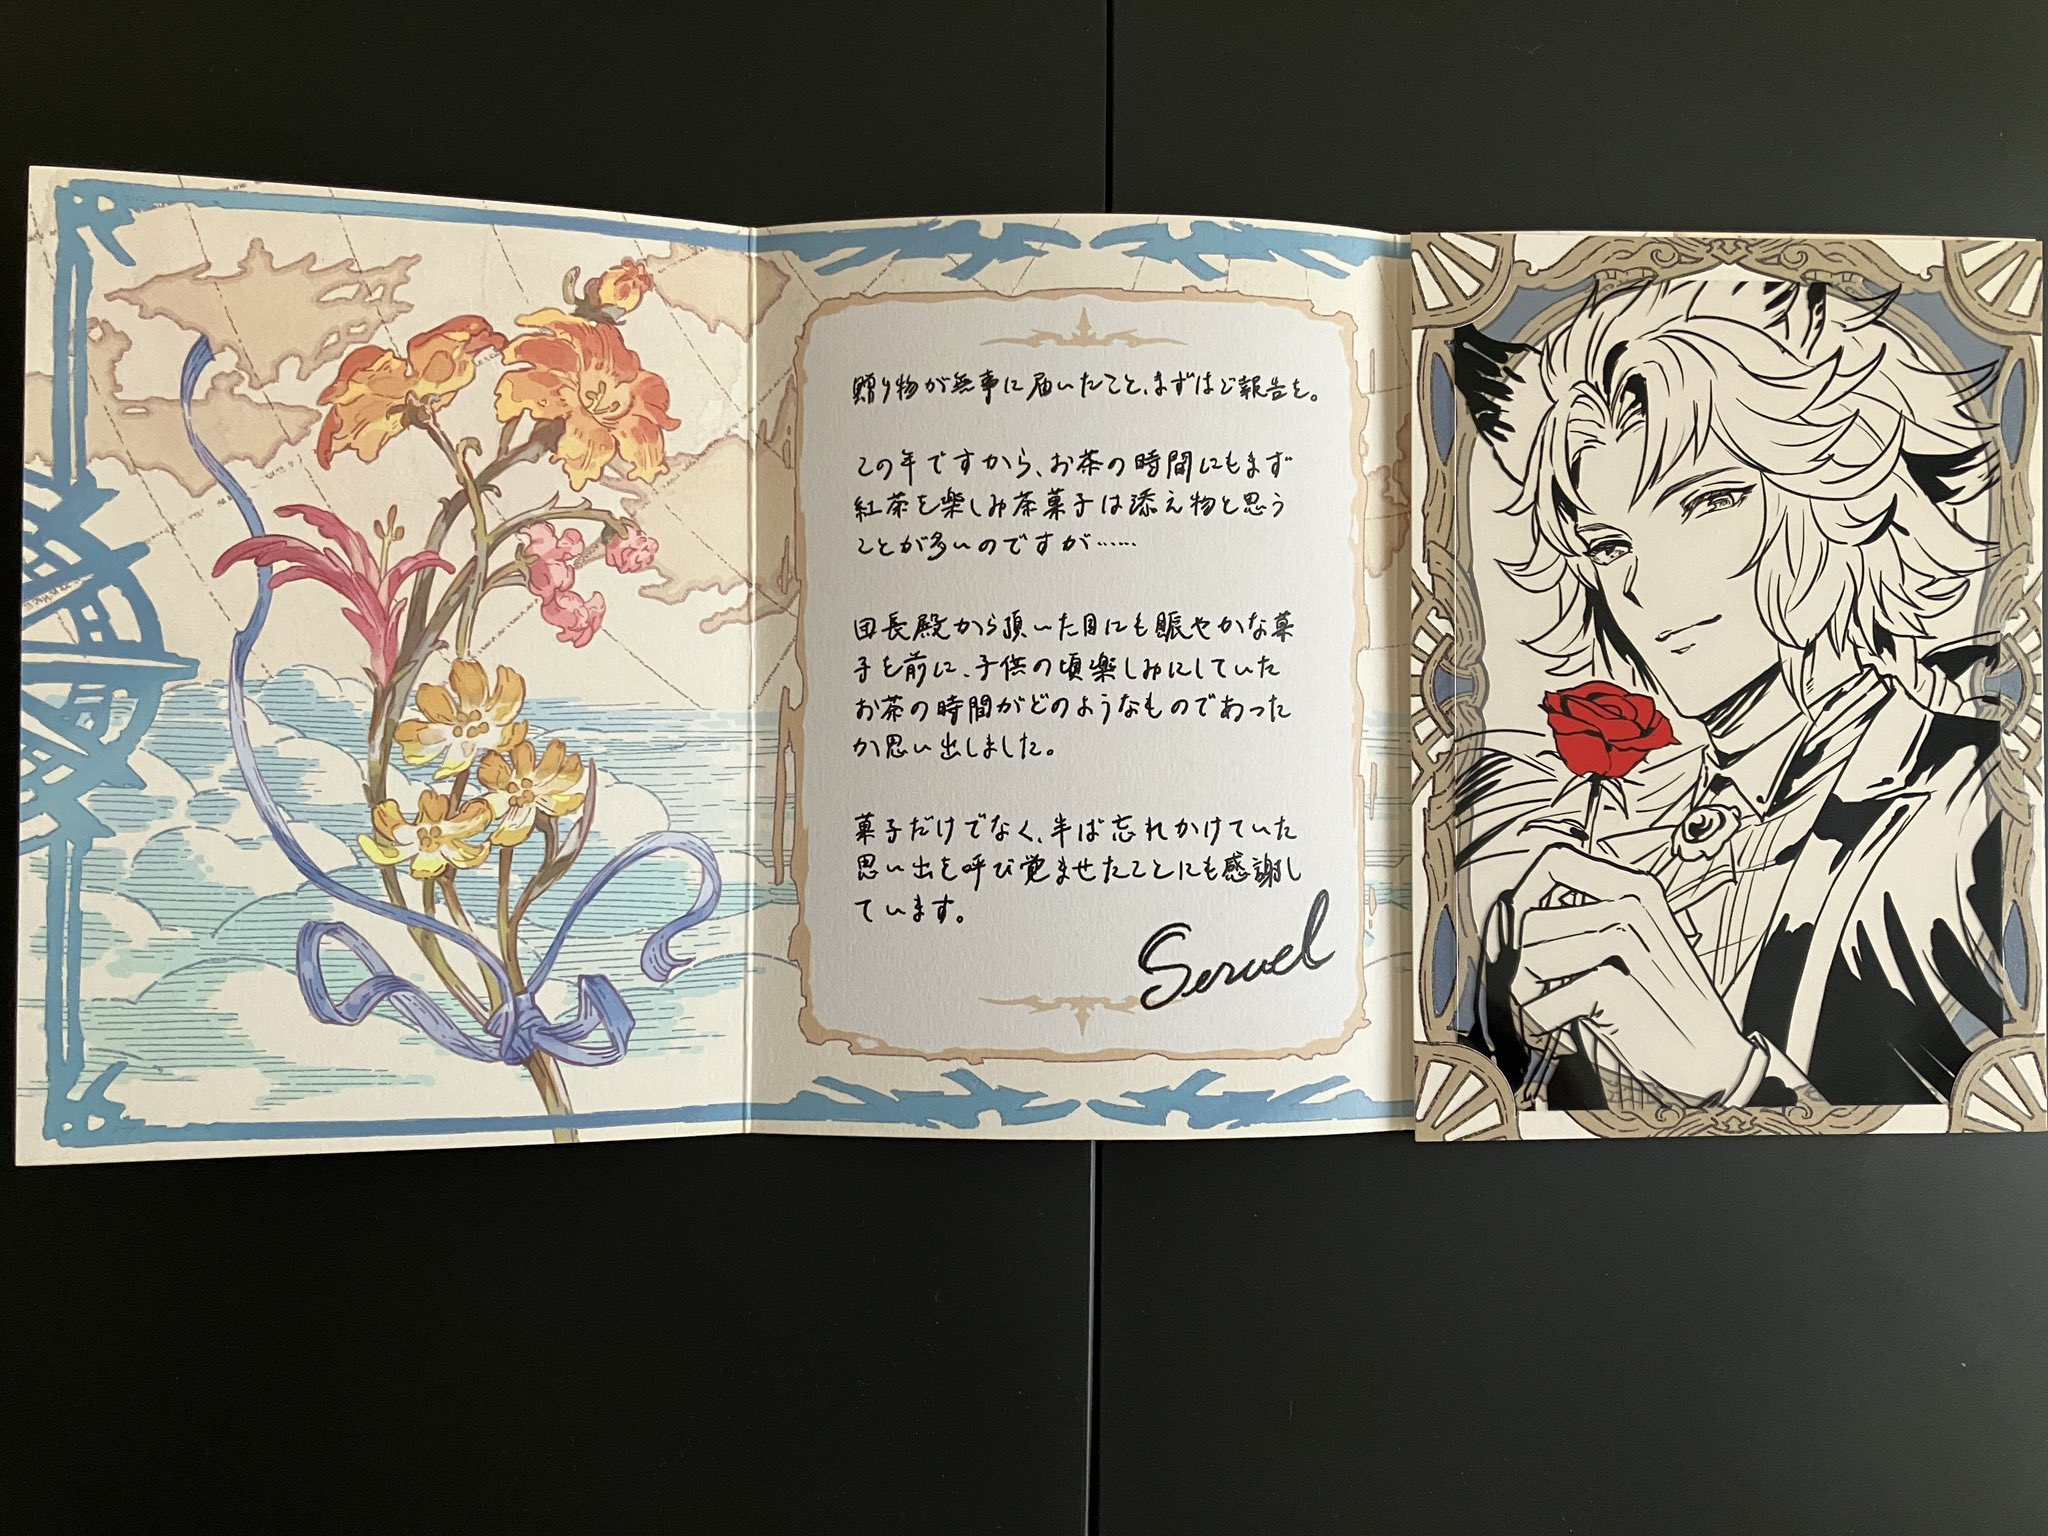 贈り物が無事に届いたこと、まずはご報告を。
この年ですから、お茶の時間にもまず
紅茶を楽しみ茶菓子は添え物と思う
ことが多いのですが……
団長殿から頂いた目にも賑やかな菓
子を前に、子供の頃楽しみにしていた
お茶の時間がどのようなものであった
か思い出しました。
菓子だけでなく、半ば忘れかけていた
思い出を呼び覚ませたことにも感謝し
ています。
Seruel